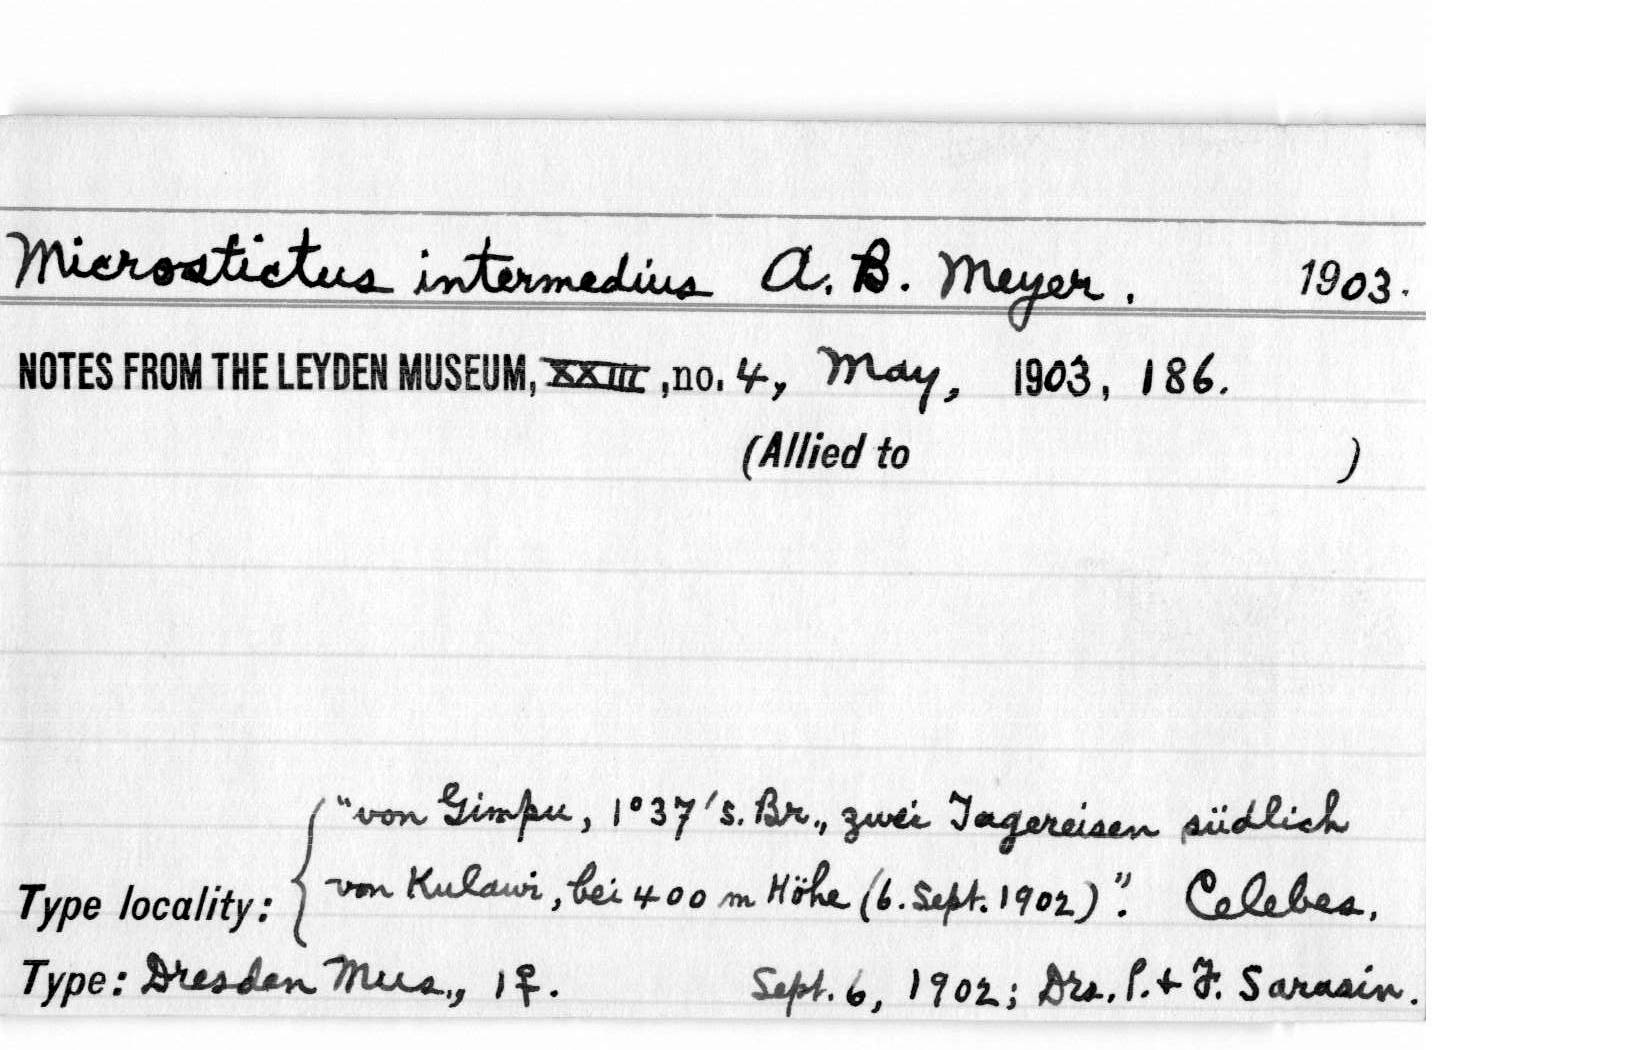 Microstictus intermedius A. B. Meyer. 1903.
NOTES FROM THE LEYDEN MUSEUM, XXIII, no. 4, May, 1903, 186.
(Allied to )
"von Gimpu, 1°37' s. Br., zwei Tagereisen südlich
von Kulawi, bei 400 m Höhe (6. Sept. 1902)". Celebes.
Type locality:
Type: Dresden Mus., 1♀. Sept. 6, 1902; Drs. P. + F. Sarasin.